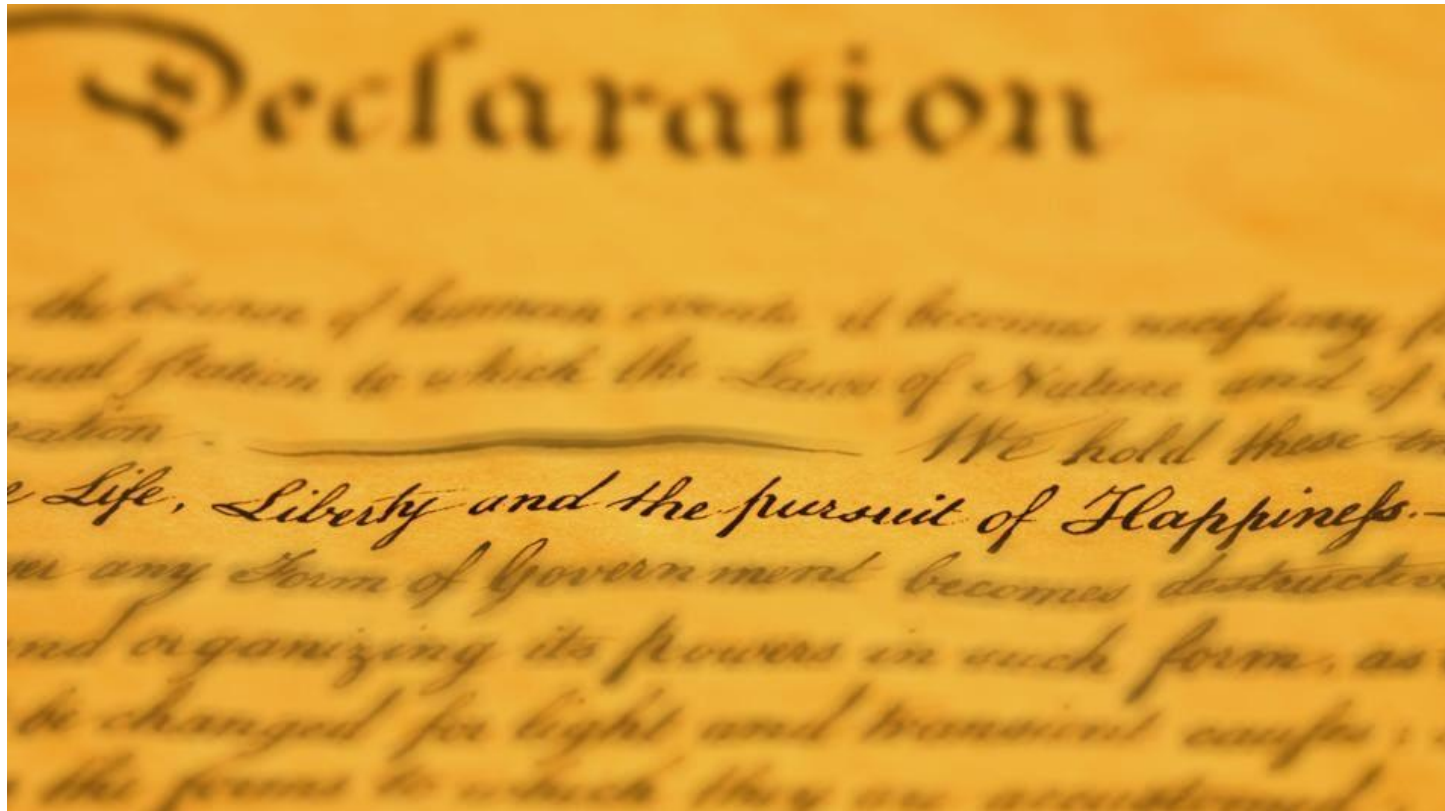 Declaration
the course of human events it becomes necessary
qual station to which the Laws of Nature and of
ration. We hold these
e Life, Liberty and the pursuit of Happiness.—
er any Form of Government becomes destructive
nd organizing its powers in such form, as
be changed for light and transient causes;
the forms to which they are accustomed.